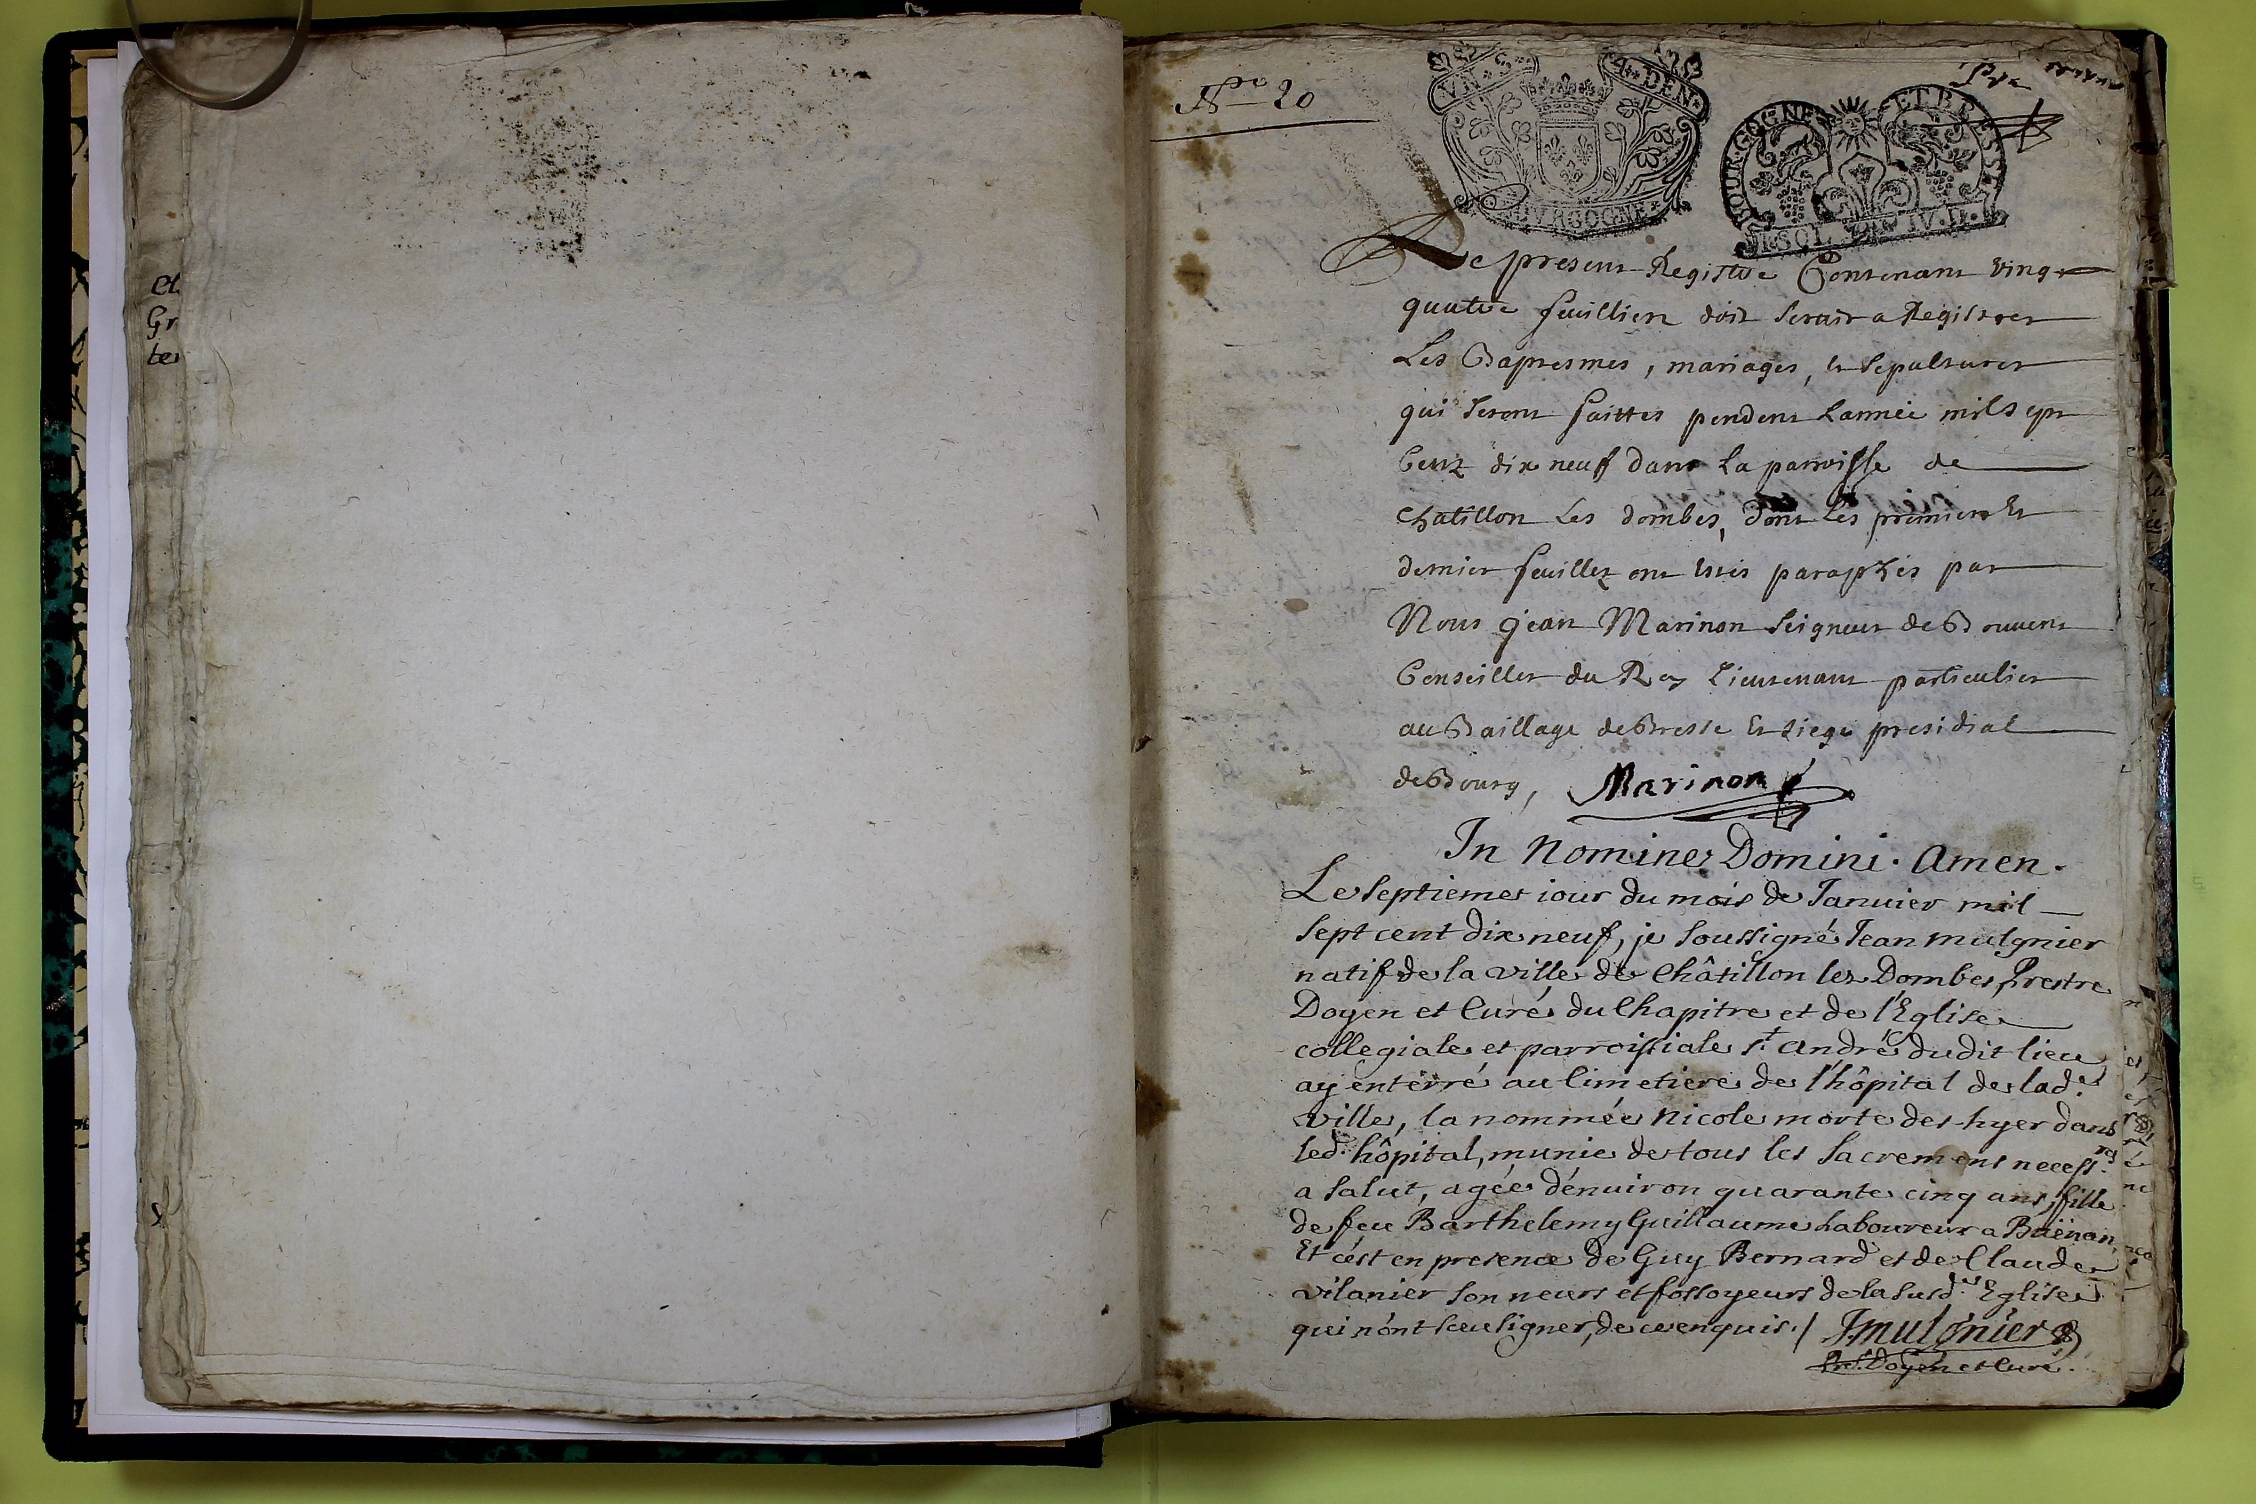 et
Gr
te
No 20
VN S.
4 DEN
BOURGOGNE
BOURGOGNE ET BRESSE
Pre
Le present Registre Contenant ving
quatre feuillien doit servir a Registrer
Les Baptesmes, mariages, et sepultures
qui seront faittes pendent Lannee mil sept
Cent dix neuf dans La parroisse de
Chatillon Les dombes, dont Les premier Et
dernier feuillet ont Estés paraphés par
Nous Jean Marinon Seigneur de Bouvent
Conseiller du Roy Lieutenant particulier
au Baillage de Bresse Et siege presidial
de Bourg, Marinon
In Nomine Domini. Amen.
Le septieme iour du mois de Ianuier mil
sept cent dix neuf, je soussigné Iean mulgnier
natif de la ville de Châtillon les Dombes Prestre
Doyen et Curé du Chapitre et de l'Eglise
collegiale et parroissiale st André dudit lieu
ay enterré au Cimetiere de l'hôpital de lad.e
ville, la nommée Nicole morte des-hyer dans
led. hôpital, munie de tous les sacremens necess.res
a salut, agée dénuiron quarante cinq ans, fille
de feu Barthelemy Guillaume Laboureur a Baënan,
Et cést en presence de Guy Bernard et de Claude
vilanier sonneurs et fossoyeurs de la susd.e Eglise
qui nónt sceu signer, de ce enquis./ J. mulgnier
Pre. Doyen et Curé.